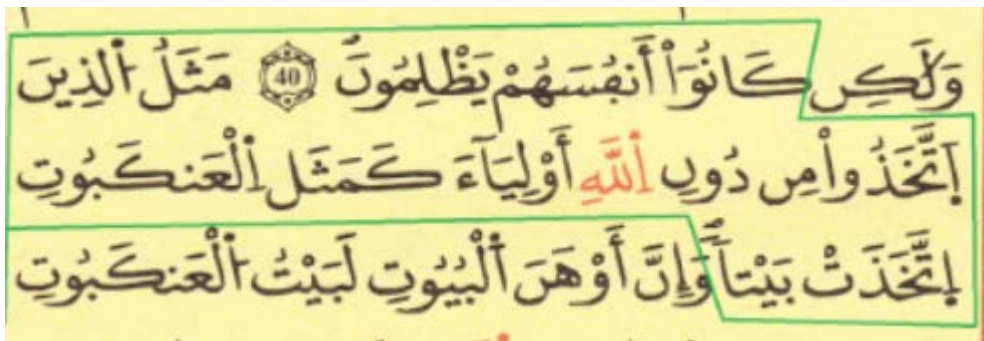 وَلَٰكِن كَانُوٓاْ أَنفُسَهُمْ يَظْلِمُونَۖ 40 مَثَلُ اُ۬لذِينَ
اَ۪تَّخَذُواْ مِن دُونِ اِ۬للَّهِ أَوْلِيَآءَ كَمَثَلِ اِ۬لْعَنكَبُوتِ
اِ۪تَّخَذَتْ بَيْتاٗۖ وَإِنَّ أَوْهَنَ اَ۬لْبُيُوتِ لَبَيْتُ اُ۬لْعَنكَبُوتِ